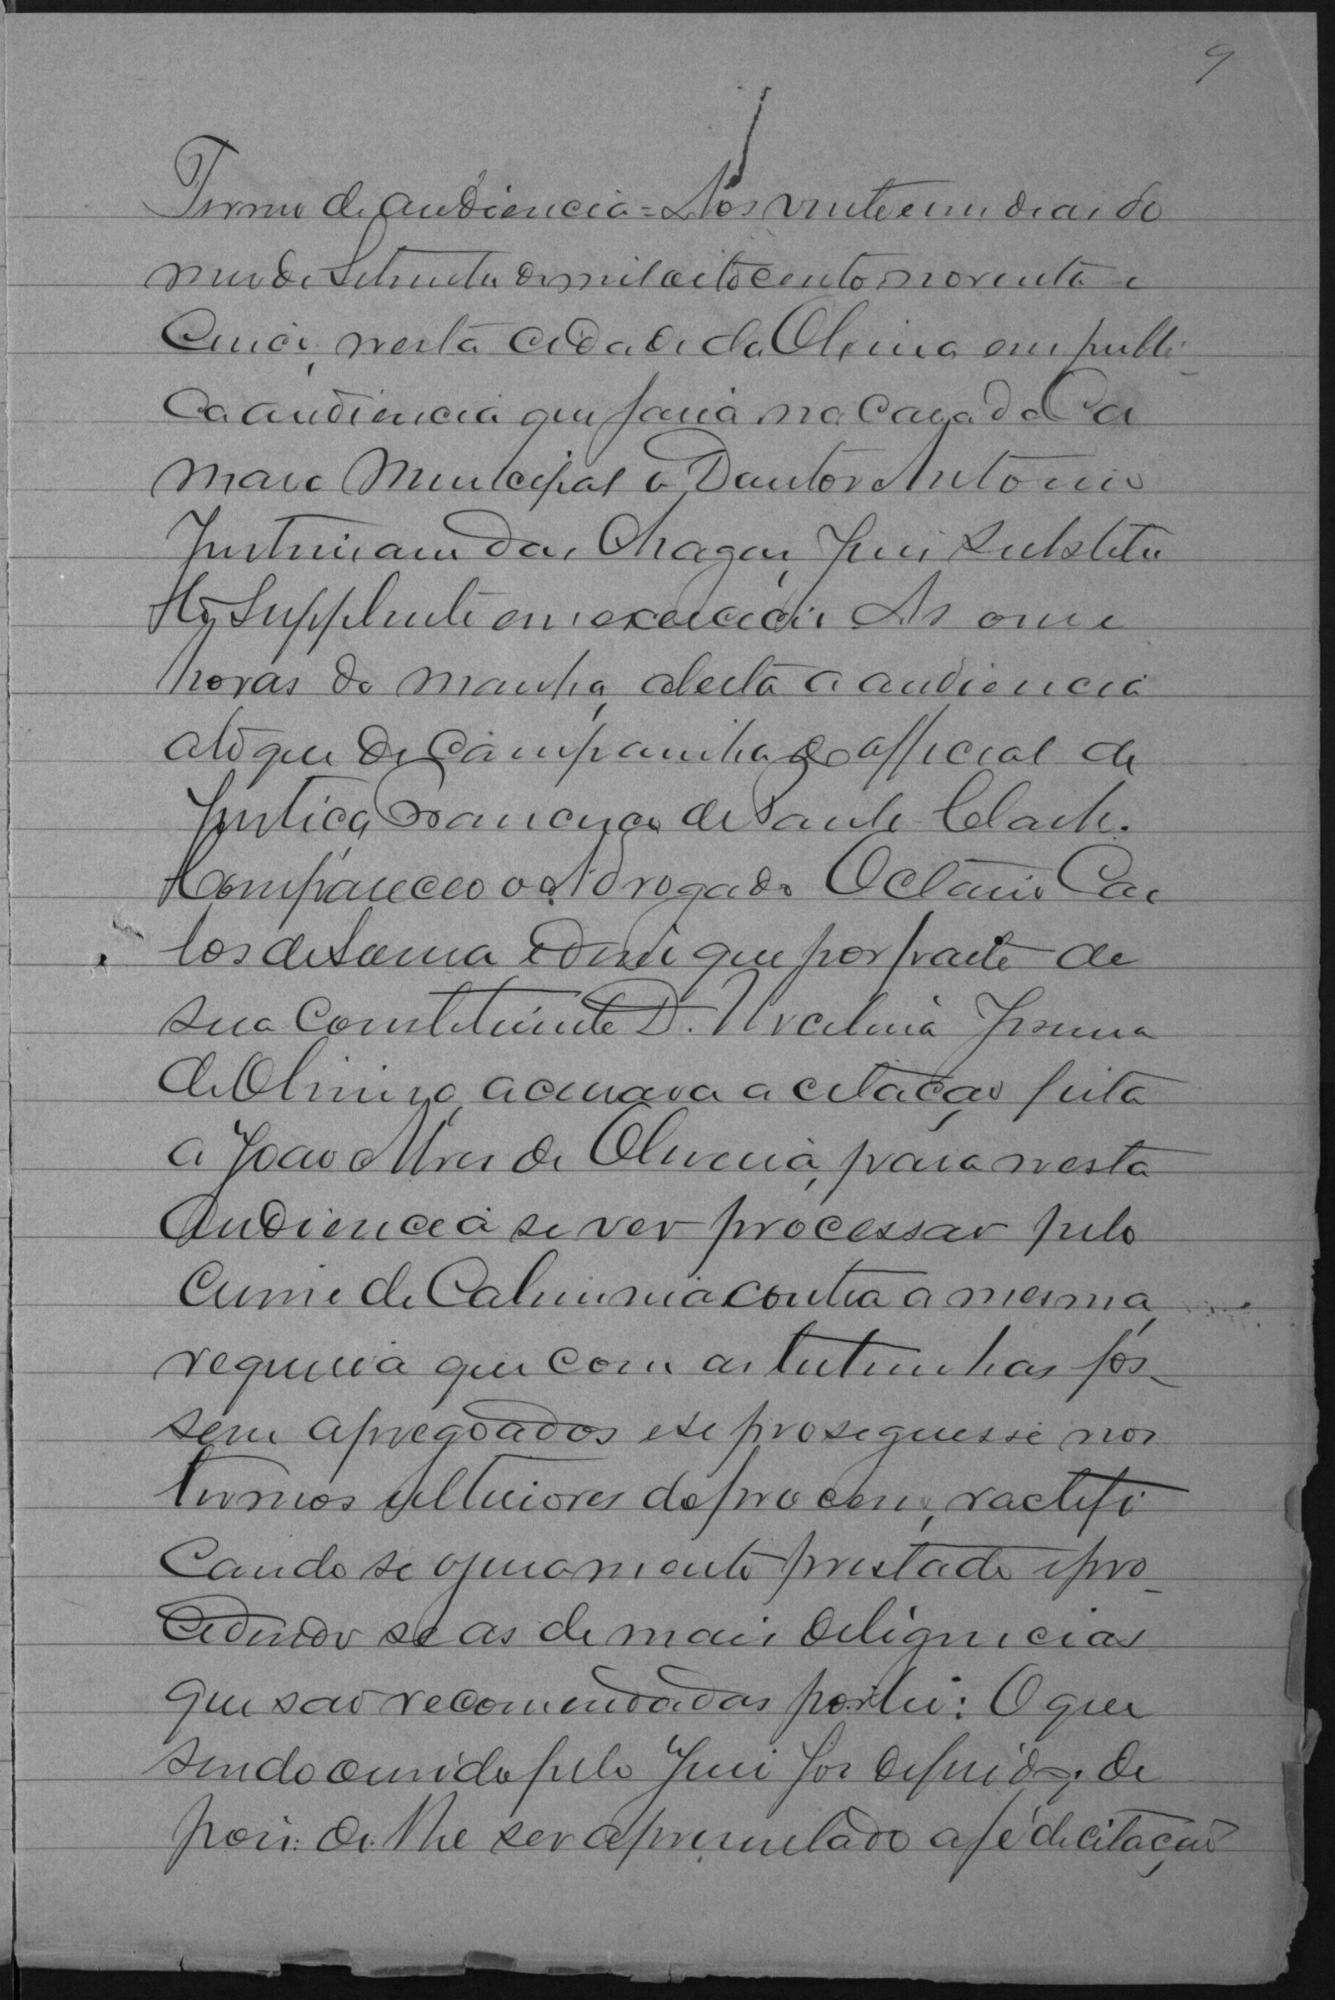 9
Termo de audiencia = Aos vinte e um dias do
mes de Setembro de mil oitocentos noventa e
cinco, nesta cidade da Oliveira em publi-
ca audiencia que fasia na Casa da Ca
mara Municipal o Doutor Antonio
Justiniano das Chagas, Juis substitu
to Supplente em exercicio As onse
horas da manhã, aberta a audiencia
a toque de campainha do official de
Justiça Francisco de Paula
Compareceo o Advogado Octavio Car
los de e disse que por parte de
sua Constituinte D. Jesuina
de Oliveira, acusava a citação feita
a João Alves de Oliveira, para nesta
audiencia se ver processar pelo
crime de Calumnia contra a mesma,
requeria que com as testemunhas fos-
sem apregoados e se proseguesse nos
termos ulteriores do processo, ractifi
cando se o juramento prestado e pro-
cedendo se as de mais deligencias
que são recomendadas por lei: O que
sendo ouvido pelo Juis foi deferido, de
pois de lhe ser apresentado a fé de citação